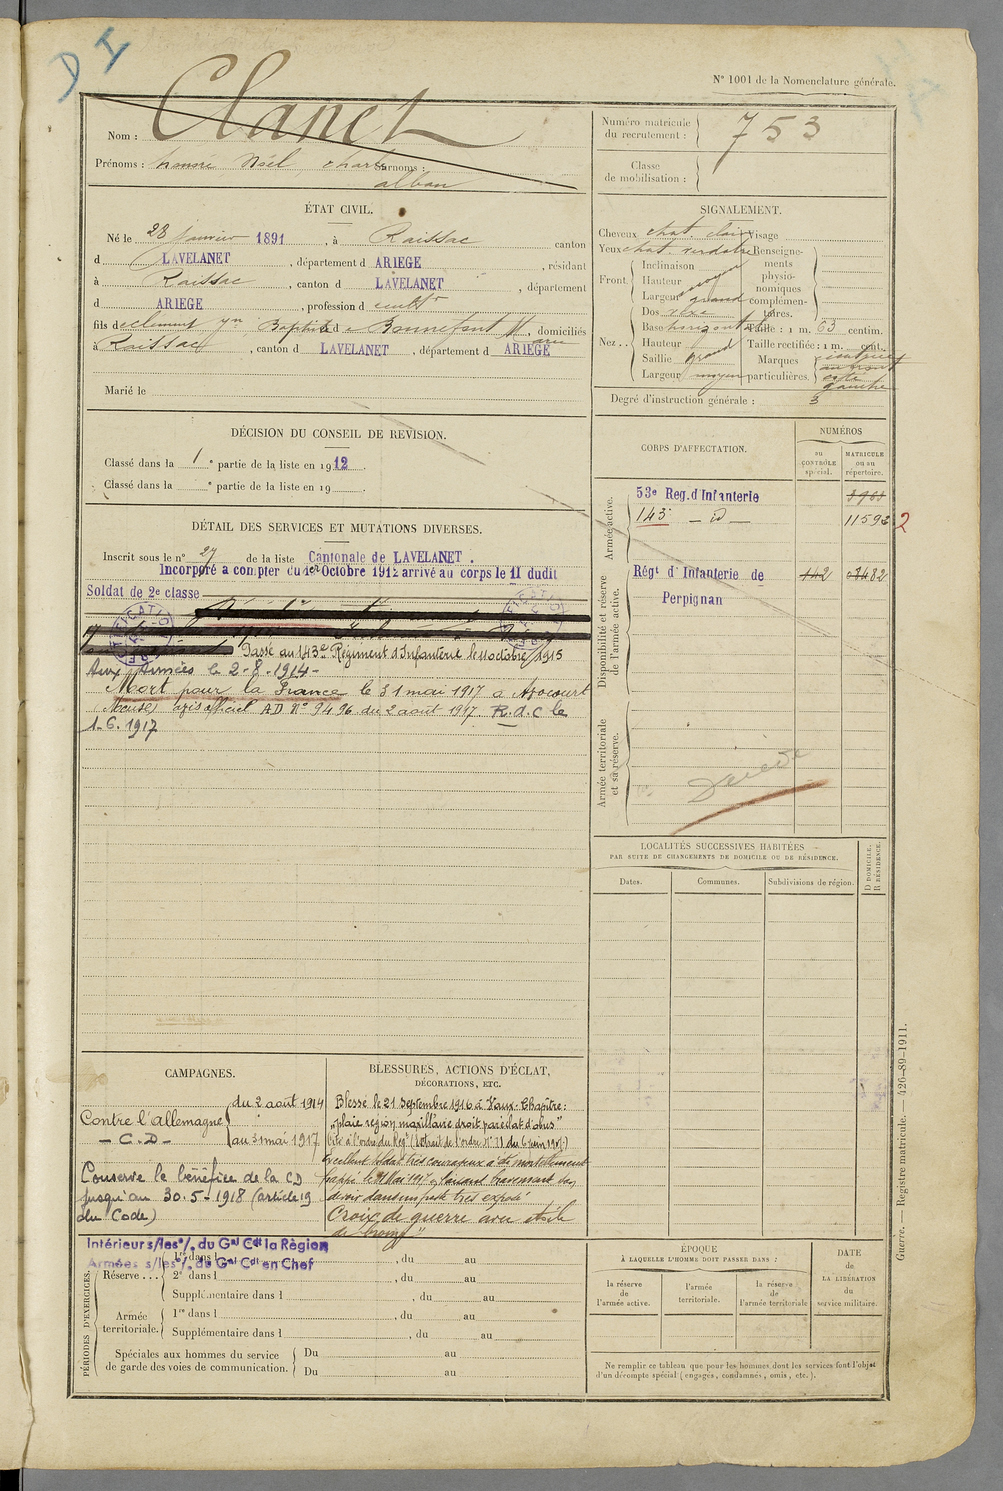 D I
N° 1001 de la Nomenclature générale.
Nom : Clanet
Prénoms : honoré Noël, charles Surnoms :
alban
Numéro matricule du recrutement : 753
Classe de mobilisation :
ÉTAT CIVIL.
Né le 28 janvier 1891, à Raissac canton
d LAVELANET, département d ARIEGE, résidant
à Raissac, canton d LAVELANET, département
d ARIEGE, profession d cultr
fils d clement Baptiste et d Bonnefont M, domiciliés
à Raissac, canton d LAVELANET, département d ARIEGE
Marié le
SIGNALEMENT.
Cheveux chat. clair Visage
Yeux chat. verdatre Renseignements physionomiques complémentaires.
Front. Inclinaison
Hauteur moyen
Largeur grand
Nez.. Dos vexe
Base horizont Taille : 1 m. 63 centim.
Hauteur Taille rectifiée : 1 m. cent.
Saillie grand Marques particulières. au front coté gauche
Largeur moyen
Degré d'instruction générale : 3
DÉCISION DU CONSEIL DE REVISION.
Classé dans la 1e partie de la liste en 1912.
Classé dans la e partie de la liste en 19 .
DÉTAIL DES SERVICES ET MUTATIONS DIVERSES.
Inscrit sous le n° 27 de la liste Cantonale de LAVELANET.
Incorporé a compter du 1er Octobre 1912 arrivé au corps le 11 dudit
Soldat de 2e classe
Passé au 143e Régiment d'Infanterie le 11 octobre 1915
Aux Armées le 2-8-1914-
Mort pour la France le 31 mai 1917 à Avocourt
(Meuse) avis officiel AD N° 9496 du 2 aout 1917 R.d.C le
1-6.1917
CORPS D'AFFECTATION.
NUMÉROS
au CONTRÔLE spécial.
MATRICULE ou au répertoire.
Armée active.
53e Reg. d'Infanterie 3963
143 - d° - 11592 2
Disponibilité et réserve de l'armée active.
Régt d'Infanterie de Perpignan 142
Armée territoriale et sa réserve.
LOCALITÉS SUCCESSIVES HABITÉES
PAR SUITE DE CHANGEMENTS DE DOMICILE OU DE RÉSIDENCE.
Dates.
Communes.
Subdivisions de région.
D DOMICILE.
R RÉSIDENCE.
CAMPAGNES.
Contre l'Allemagne du 2 août 1914
- C.D - au 31 mai 1917
Conserve le bénéfice de la CD
jusqu'au 30.5-1918 (article 19
du Code)
BLESSURES, ACTIONS D'ÉCLAT,
DÉCORATIONS, ETC.
Blessé le 21 Septembre 1916 à Vaux-Chapitre :
"plaie région maxillaire droit par éclat d'obus"
Cité à l'ordre du Regt (Extrait de l'ordre N° 71 du 6 juin 1917)
Excellent soldat très courageux a été mortellement
frappé le 31 Mai 1917 en faisant bravement son
devoir dans un poste très exposé
Croix de guerre avec étoile
de bronze"
Intérieur s/les o/. du Gal Cdt la Règion
Armées s/les o/. du Gal Cdt en Chef
PÉRIODES D'EXERCICES.
Réserve... 1re dans l , du au
2e dans l , du au
Supplémentaire dans l , du au
Armée territoriale. 1re dans l , du au
Supplémentaire dans l , du au
Spéciales aux hommes du service de garde des voies de communication. Du au
Du au
ÉPOQUE
À LAQUELLE L'HOMME DOIT PASSER DANS :
la réserve de l'armée active.
l'armée territoriale.
la réserve de l'armée territoriale
DATE de LA LIBÉRATION du service militaire.
Ne remplir ce tableau que pour les hommes dont les services font l'objet
d'un décompte spécial (engagés, condamnés, omis, etc.).
Guerre. — Registre matricule. — 426-89-1911.